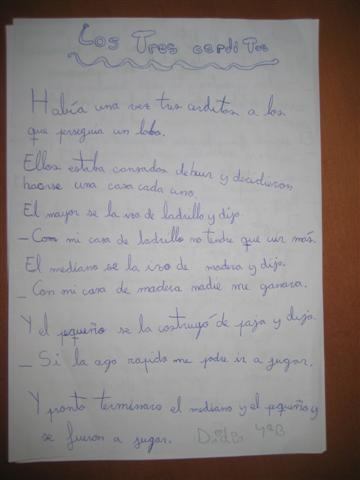 Los Tres cerditos
Había una vez tres cerditos a los
que perseguia un lobo.
Ellos estaba cansados de uir y decidieron
hacerse una casa cada uno.
El mayor se la iso de ladrillo y dijo
- Con mi casa de ladrillo no tendre que uir más.
El mediano se la izo de madera y dijo.
- Con mi casa de madera nadie me ganara.
Y el pequeño se la costruyó de paja y dijo.
- Si la ago rapido me podre ir a jugar.
Y pronto terminaro el mediano y el pequeño y
se fueron a jugar. 4ºB